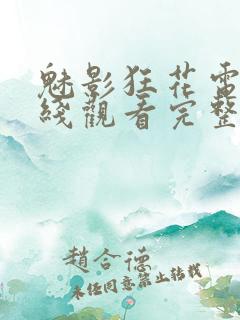 魅影狂花電
綫觀看完整
趙合德
未經同意禁止轉載